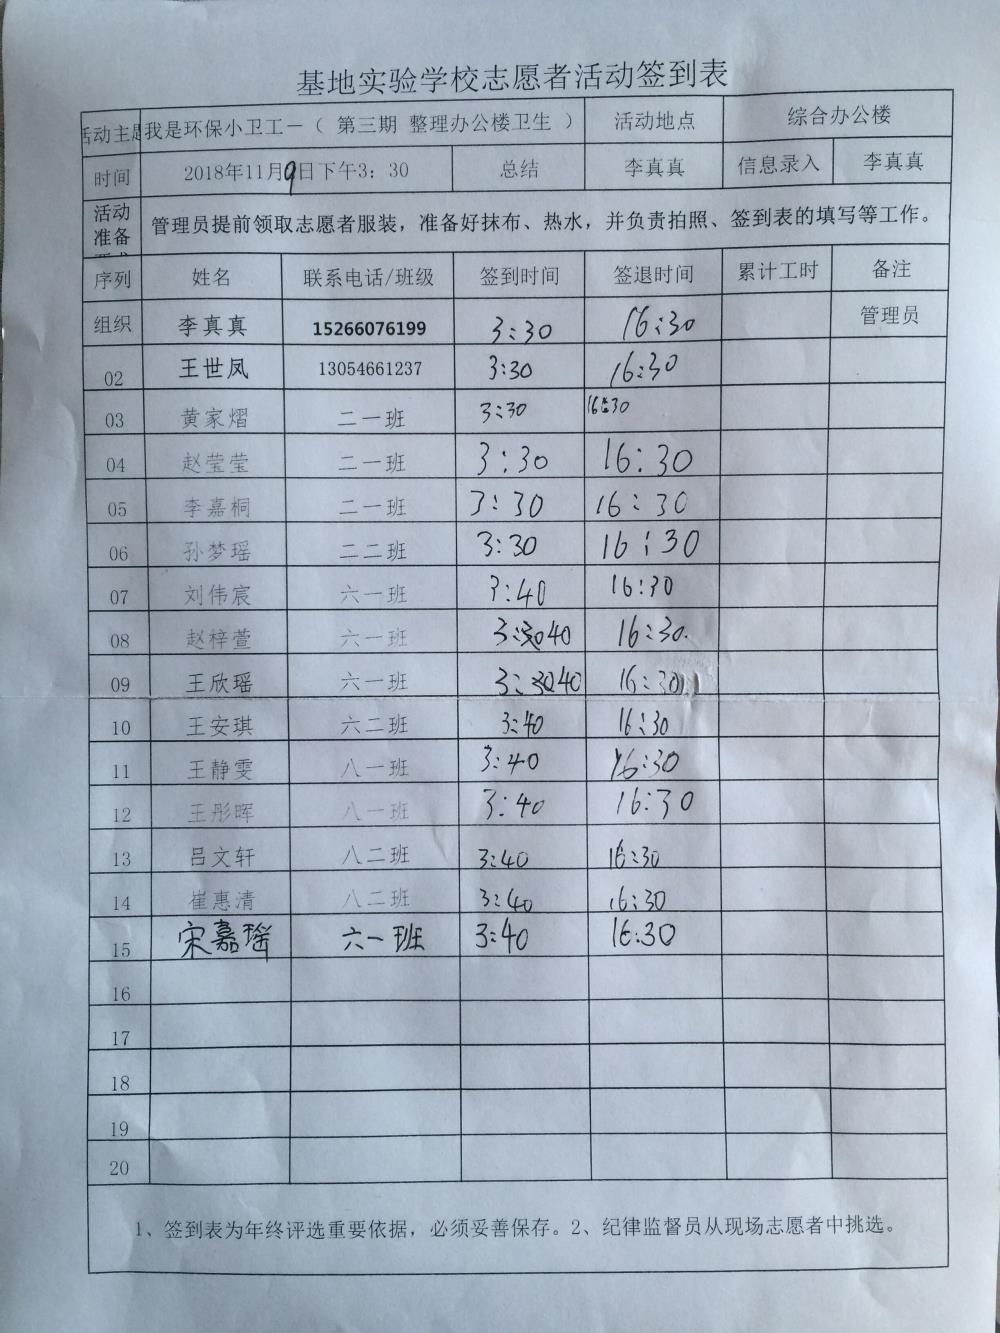 基地实验学校志愿者活动签到表
活动主题 我是环保小卫工－（ 第三期 整理办公楼卫生 ） 活动地点 综合办公楼
时间 2018年11月9日下午3：30 总结 李真真 信息录入 李真真
活动
准备
管理员提前领取志愿者服装，准备好抹布、热水，并负责拍照、签到表的填写等工作。
序列 姓名 联系电话/班级 签到时间 签退时间 累计工时 备注
组织 李真真 15266076199 3:30 16:30 管理员
02 王世凤 13054661237 3:30 16:30
03 黄家熠 二一班 3:30 16:30
04 赵莹莹 二一班 3:30 16:30
05 李嘉桐 二一班 3:30 16:30
06 孙梦瑶 二二班 3:30 16:30
07 刘伟宸 六一班 3:40 16:30
08 赵梓萱 六一班 3:40 16:30
09 王欣瑶 六一班 3:40 16:30
10 王安琪 六二班 3:40 16:30
11 王静雯 八一班 3:40 16:30
12 王彤晖 八一班 3:40 16:30
13 吕文轩 八二班 3:40 16:30
14 崔惠清 八二班 3:40 16:30
15 宋嘉瑶 六一班 3:40 16:30
16
17
18
19
20
1、签到表为年终评选重要依据，必须妥善保存。2、纪律监督员从现场志愿者中挑选。